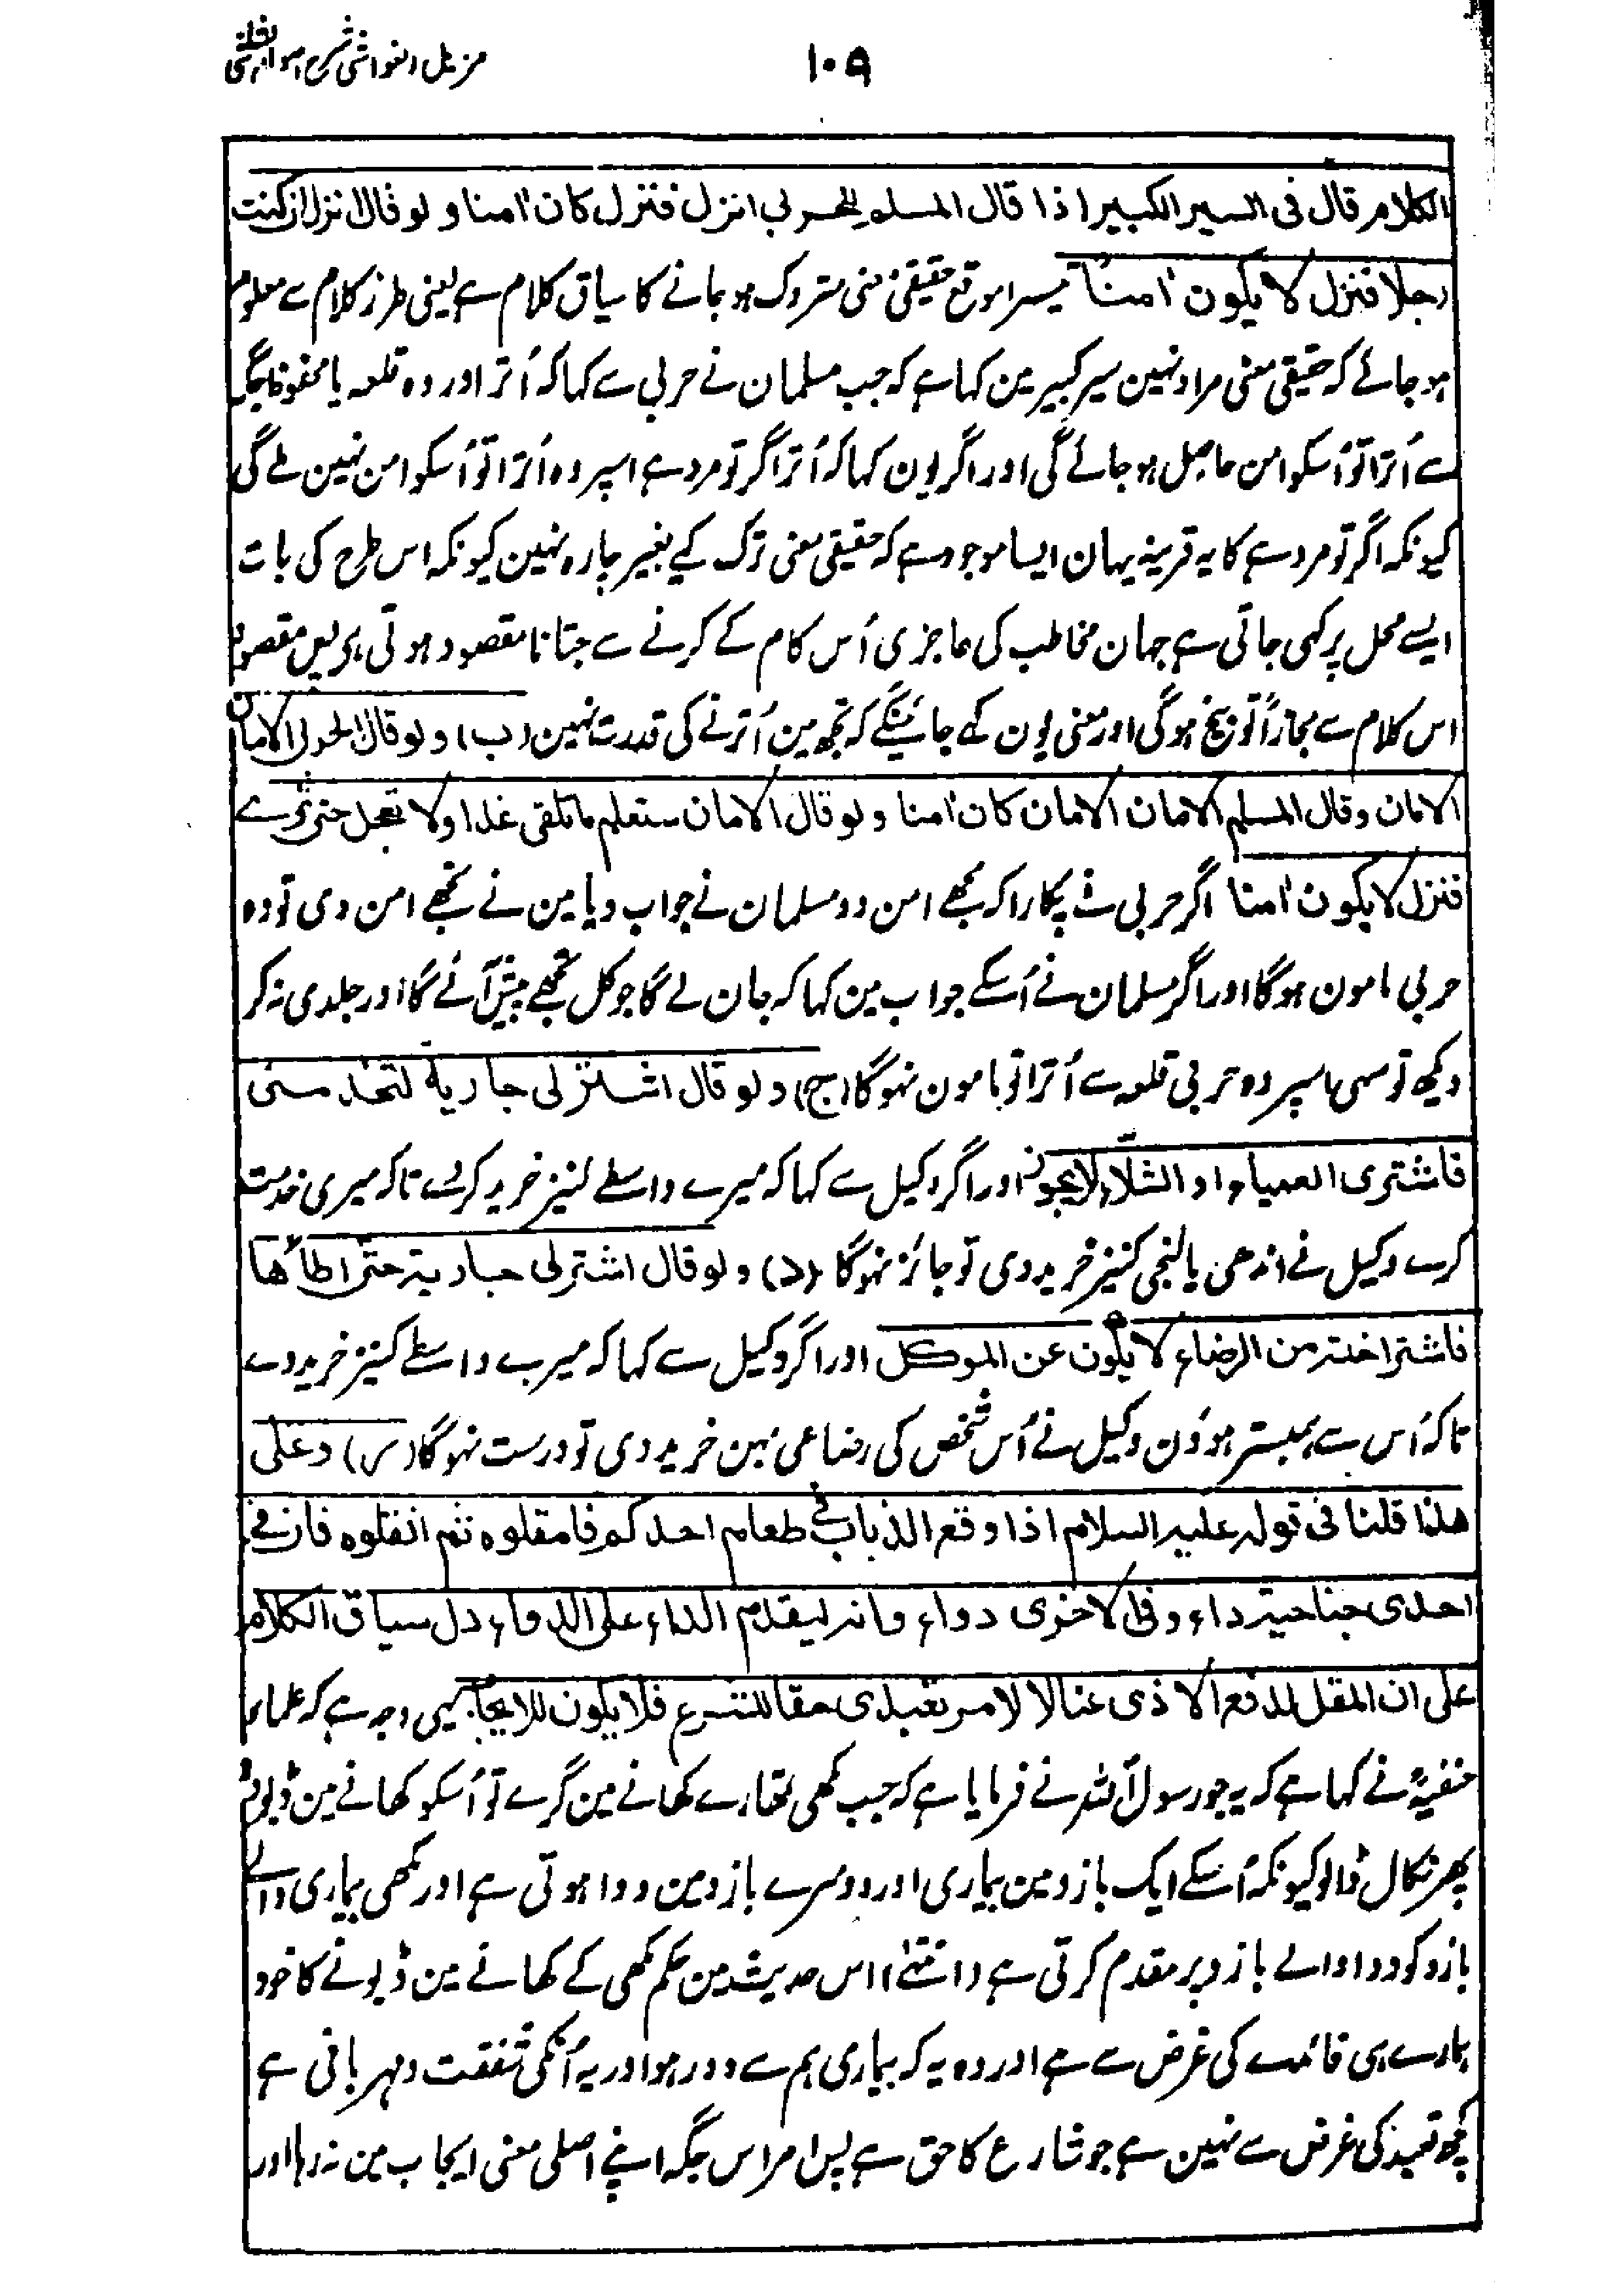 مزیل الغواشی شرح اصول الشاشی
۱۰۹
الکلام قال فی السیر الکبیر اذا قال المسلم للحربی انزل فنزل کان اٰمنا ولو قال انزل ان کنت
رجلا فنزل لا یکون اٰمناً تیسرا موقع حقیقی معنی متروک ہو جانے کا سیاق کلام ہے یعنی طرز کلام سے معلوم
ہو جائے کہ حقیقی معنی مراد نہین سیر کبیر مین کہا ہے کہ جب مسلمان نے حربی سے کہا کہ اُتر اور وہ قلعہ یا محفوظ جگہ
سے اُترا تو اُسکو امن حاصل ہو جائے گی اور اگر یون کہا کہ اُتر اگر تو مرد ہے اسپر وہ اُترا تو اُسکو امن نہین ملے گی
کیونکہ اگر تو مرد ہے کا یہ قرینہ یہان ایسا موجود ہے کہ حقیقی معنی ترک کیے بغیر چارہ نہین کیونکہ اس طرح کی بات
ایسے محل پر کہی جاتی ہے جہان مخاطب کی عاجزی اُس کام کے کرنے سے جتانا مقصود ہوتی ہے پس مقصود
اس کلام سے مجازاً توبیخ ہوگی اور معنی یون کہے جائینگے کہ تجھ مین اُترنے کی قدرت نہین (ب) ولو قال الحربی الامان
الامان وقال المسلم الامان الامان کان اٰمنا ولو قال الامان ستعلم ما تلقی غدا ولا تعجل حتی ترے
فنزل لا یکون اٰمنا اگر حربی نے پکارا کہ مجھے امن دو مسلمان نے جواب دیا مین نے تجھے امن دی تو وہ
حربی مامون ہوگا اور اگر مسلمان نے اُسکے جواب مین کہا کہ جان لے گا جو کل تجھے پیش آئے گا اور جلدی نہ کر
دیکھ تو سہی اسپر وہ حربی قلعہ سے اُترا تو مامون نہوگا (ج) ولو قال اشتر لی جاریة لتخدمنی
فاشتری العمیاء او الشلّاء لا یجوز اور اگر وکیل سے کہا کہ میرے واسطے کنیز خرید کرلے تاکہ میری خدمت
کرے وکیل نے اندھی یا لنجی کنیز خرید دی تو جائز نہوگا (د) ولو قال اشتر لی جاریة حتی اطأھا
فاشتر اختہ من الرضاء لا یکون عن الموکل اور اگر وکیل سے کہا کہ میرے واسطے کنیز خرید دے
تاکہ اُس سے ہمبستر ہوؤن وکیل نے اُس شخص کی رضاعی بہن خرید دی تو درست نہوگا (س) وعلی
ھذا قلنا فی قولہ علیہ السلام اذا وقع الذباب فی طعام احدکم فامقلوہ ثم انقلوہ فان فی
احدی جناحیہ داء وفی الاخری دواء وانہ لیقدم الداء علی الدواء دل سیاق الکلام
علی ان المقل لدفع الاذی عنا لا لامر تعبدی حقا للشرع فلا یکون للایجاب یہی وجہ ہے کہ علماء
حنفیہؒ نے کہا ہے کہ یہ جو رسول اللہ نے فرمایا ہے کہ جب مکھی تمھارے کھانے مین گرے تو اُسکو کھانے مین ڈبو دو
پھر نکال ڈالو کیونکہ اُسکے ایک بازو مین بیماری اور دوسرے بازو مین دوا ہوتی ہے اور مکھی بیماری والے
بازو کو دوا والے بازو پر مقدم کرتی ہے (انتہٰے) اس حدیث مین حکم مکھی کے کھانے مین ڈبونے کا خود
ہمارے ہی فائدے کی غرض سے ہے اور وہ یہ کہ بیماری ہم سے دور ہو اور یہ اُنکی شفقت و مہربانی ہے
کچھ تعبد کی غرض سے نہین ہے جو شارع کا حق ہے پس امر اس جگہ اپنے اصلی معنی ایجاب مین نہ رہا اور